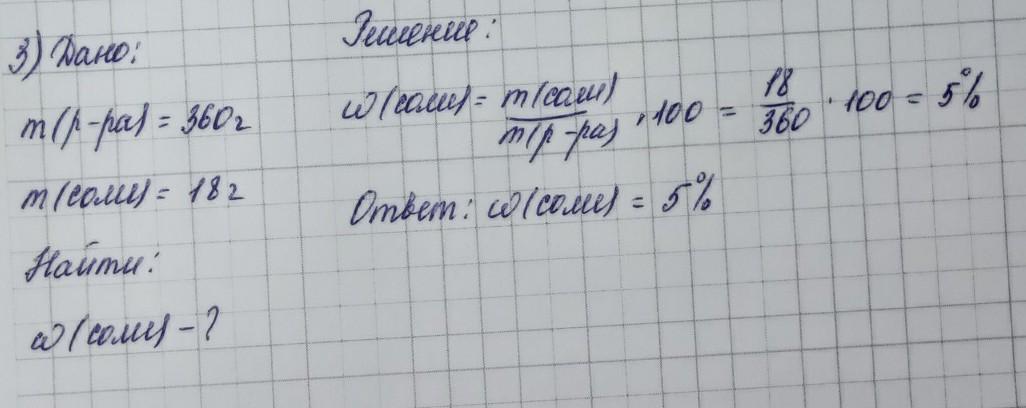 3) Дано:
m(р-ра) = 360г
m(соли) = 18г
Найти:
ω(соли) - ?
Решение:
ω(соли) = m(соли)/m(р-ра) · 100 = 18/360 · 100 = 5%
Ответ: ω(соли) = 5%